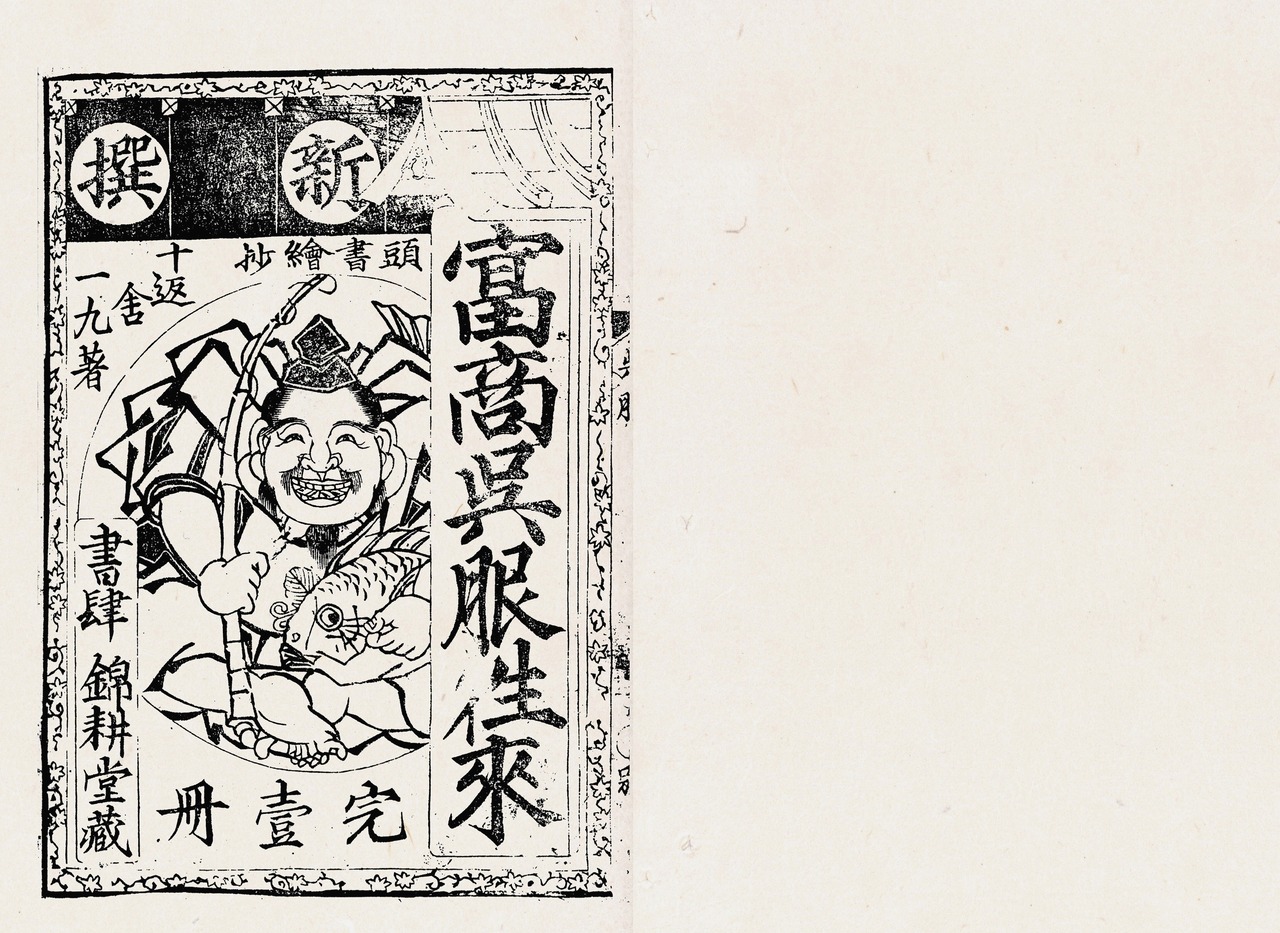 新撰
冨商呉服徃來
頭書繪抄
十返舎
一九著
完壹冊
書肆 錦耕堂藏
呉服